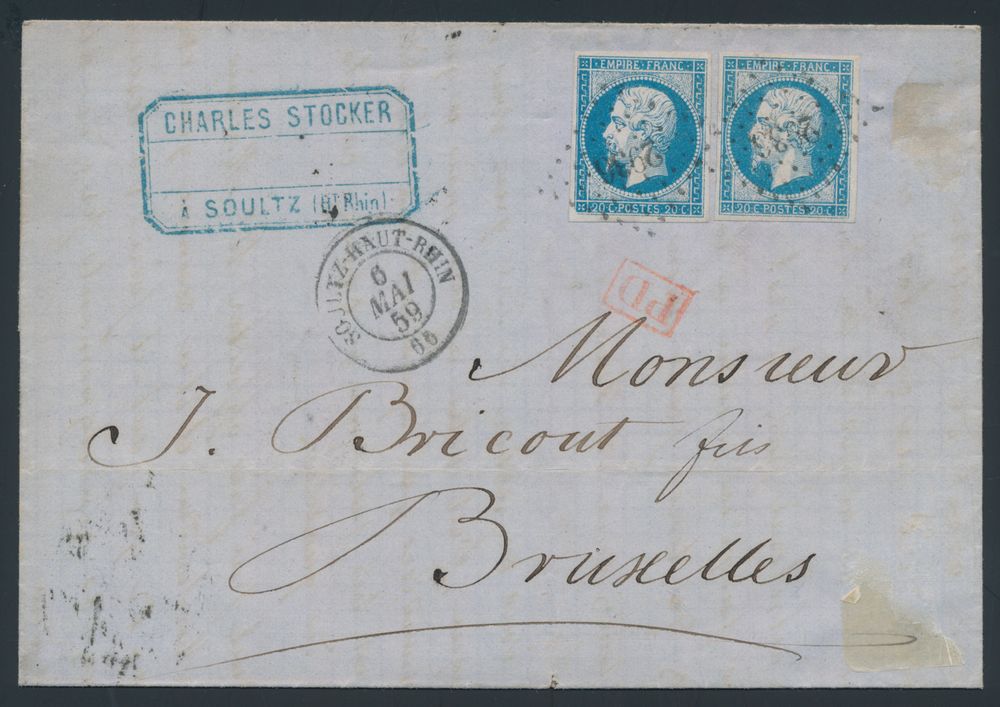 CHARLES STOCKER
À SOULTZ (Ht Rhin)
EMPIRE · FRANC ·
20·C·POSTES·20·C·
EMPIRE · FRANC ·
20·C·POSTES·20·C·
SOULTZ-HAUT-RHIN
6
MAI
59
65
PD
Monsieur
J. Bricout fils
Bruxelles